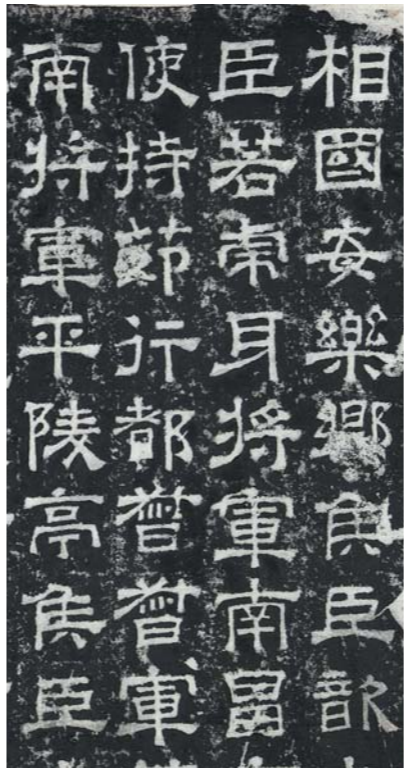 相國安樂鄉侯臣歆
臣若虎牙將軍南昌
使持節行都督督軍
南將軍平陵亭侯臣